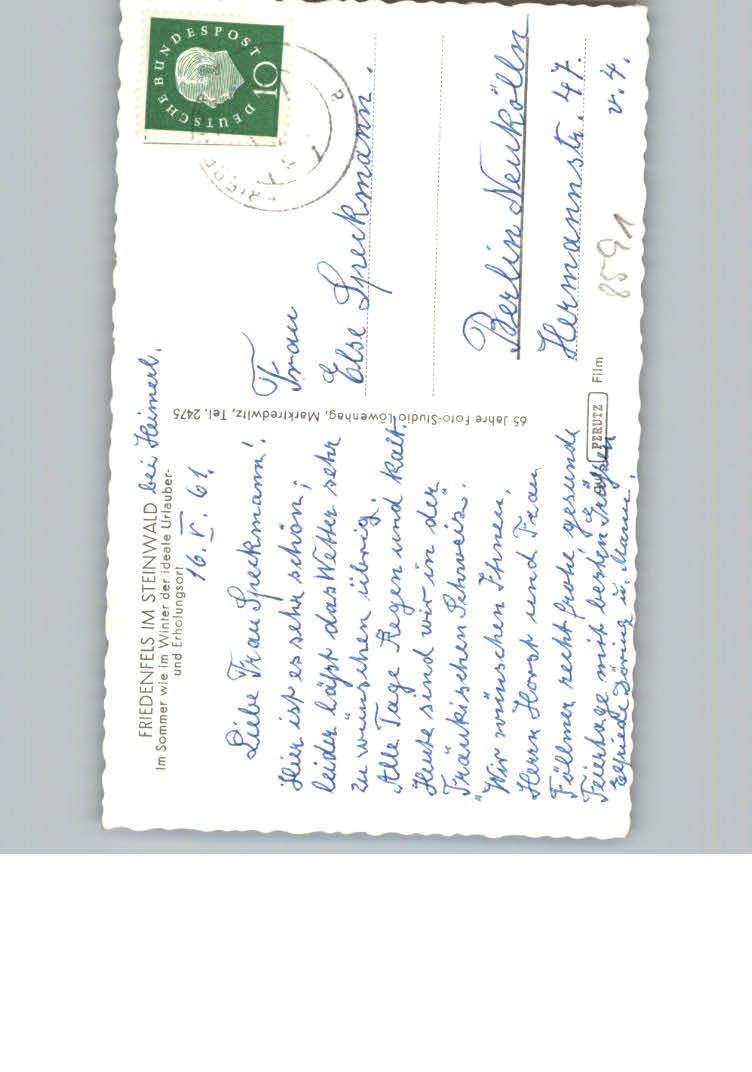 FRIEDENFELS IM STEINWALD bei Heimerl.
Im Sommer wie im Winter der ideale Urlauber-
und Erholungsort
16. V. 61.
Liebe Frau Speckmann!
Hier ist es sehr schön,
leider läßt das Wetter sehr
zu wünschen übrig.
Alle Tage Regen und kalt.
Heute sind wir in der
"Fränkischen Schweiz".
Wir wünschen Ihnen,
Herrn Horst und Frau
Föllmer recht frohe gesunde
Feiertage mit besten Grüßen
Elfriede Döring u. Mann.
65 Jahre Foto-Studio Löwenhag, Marktredwitz, Tel. 2475
auf PERUTZ Film
DEUTSCHE BUNDESPOST
10
a
Frau
Else Speckmann.
Berlin Neukölln
Hermannstr. 47.
v. 4.
8591